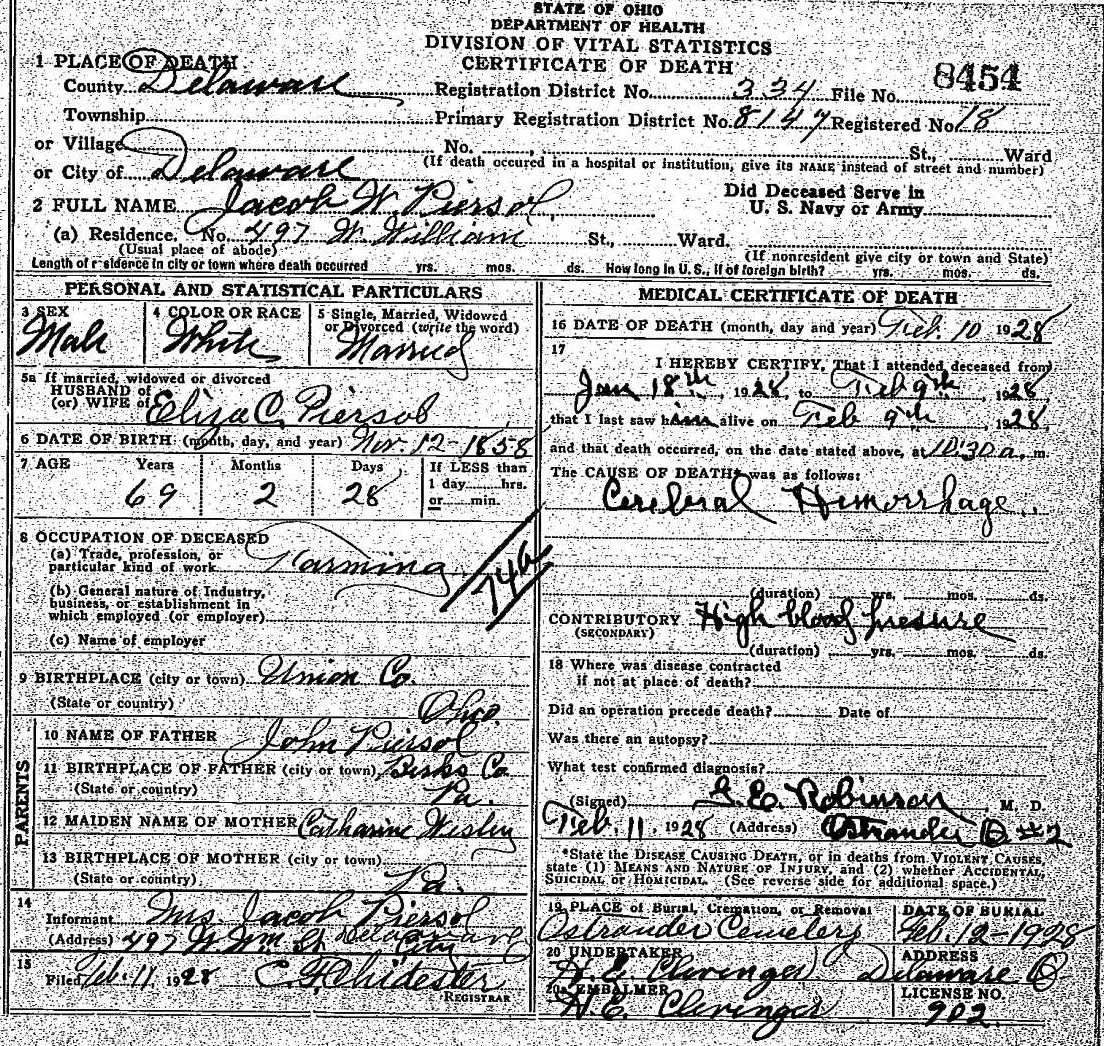 STATE OF OHIO
DEPARTMENT OF HEALTH
DIVISION OF VITAL STATISTICS
CERTIFICATE OF DEATH
8454
1 PLACE OF DEATH
County Delaware Registration District No. 334 File No.
Township Primary Registration District No. 8147 Registered No. 18
or Village No. , St., Ward
or City of Delaware (If death occured in a hospital or institution, give its NAME instead of street and number)
2 FULL NAME Jacob W. Piersol Did Deceased Serve in U. S. Navy or Army
(a) Residence. No. 497 W. William St., Ward.
(Usual place of abode) (If nonresident give city or town and State)
Length of residence in city or town where death occurred yrs. mos. ds. How long in U.S., if of foreign birth? yrs. mos. ds.
PERSONAL AND STATISTICAL PARTICULARS
3 SEX 4 COLOR OR RACE 5 Single, Married, Widowed
or Divorced (write the word)
Male White Married
5a If married, widowed or divorced
HUSBAND of
(or) WIFE of Eliza C. Piersol
6 DATE OF BIRTH (month, day, and year) Nov. 12-1858
7 AGE Years Months Days If LESS than
1 day hrs.
or min.
69 2 28
8 OCCUPATION OF DECEASED
(a) Trade, profession, or
particular kind of work Farming
74a
(b) General nature of Industry,
business, or establishment in
which employed (or employer)
(c) Name of employer
9 BIRTHPLACE (city or town) Union Co.
(State or country) Ohio.
PARENTS
10 NAME OF FATHER John Piersol
11 BIRTHPLACE OF FATHER (city or town) Berks Co.
(State or country) Pa.
12 MAIDEN NAME OF MOTHER Catharine Wesley
13 BIRTHPLACE OF MOTHER (city or town)
(State or country) Pa.
14
Informant Mrs Jacob Piersol
(Address) 497 W. Wm. St Delaware City
15
Filed Feb. 11, 1928 C. F. Chidester
REGISTRAR
MEDICAL CERTIFICATE OF DEATH
16 DATE OF DEATH (month, day and year) Feb. 10 1928
17
I HEREBY CERTIFY, That I attended deceased from
Jan 18th, 1928, to Feb 9th, 1928
that I last saw him alive on Feb 9th, 1928,
and that death occurred, on the date stated above, at 10:30 a. m.
The CAUSE OF DEATH* was as follows:
Cerebral Hemorrhage.
(duration) yrs. mos. ds.
CONTRIBUTORY High blood pressure
(SECONDARY)
(duration) yrs. mos. ds.
18 Where was disease contracted
if not at place of death?
Did an operation precede death? Date of
Was there an autopsy?
What test confirmed diagnosis?
(Signed) G. E. Robinson M. D.
Feb. 11, 1928 (Address) Ostrander O #2
*State the DISEASE CAUSING DEATH, or in deaths from VIOLENT CAUSES,
state (1) MEANS AND NATURE OF INJURY, and (2) whether ACCIDENTAL,
SUICIDAL or HOMICIDAL. (See reverse side for additional space.)
19 PLACE of Burial, Cremation, or Removal DATE OF BURIAL
Ostrander Cemetery Feb. 12-1928
20 UNDERTAKER ADDRESS
H. E. Clevinger Delaware O
20a EMBALMER LICENSE NO.
H. E. Clevinger 902